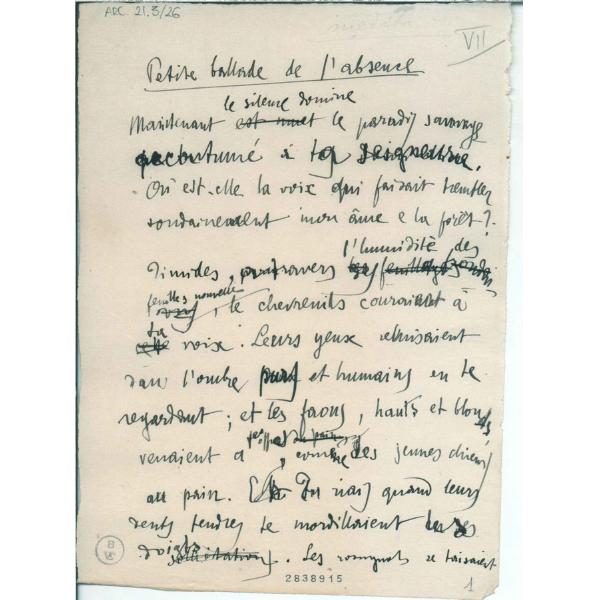 ARC. 21.3/26
VII
Petite ballade de l'absence
le silence domine
Maintenant est muet le paradis sauvage
accoutumé à ta seigneurie.
Où est-elle la voix qui faisait trembler
soudainement mon âme e la forêt?
l'humidité des
Timides, à travers les feuillages
feuilles nouvelles, le chevreuils couraient à
ta voix. Leurs yeux reluisaient
dan l'ombre purs et humains en te
regardant; et les faons, hauts et blonds
venaient à, comme des jeunes chiens
au pain. Tu riais quand leurs
dents tendres te mordillaient les
doigts. Les rossignols se taisaient
2838915
1